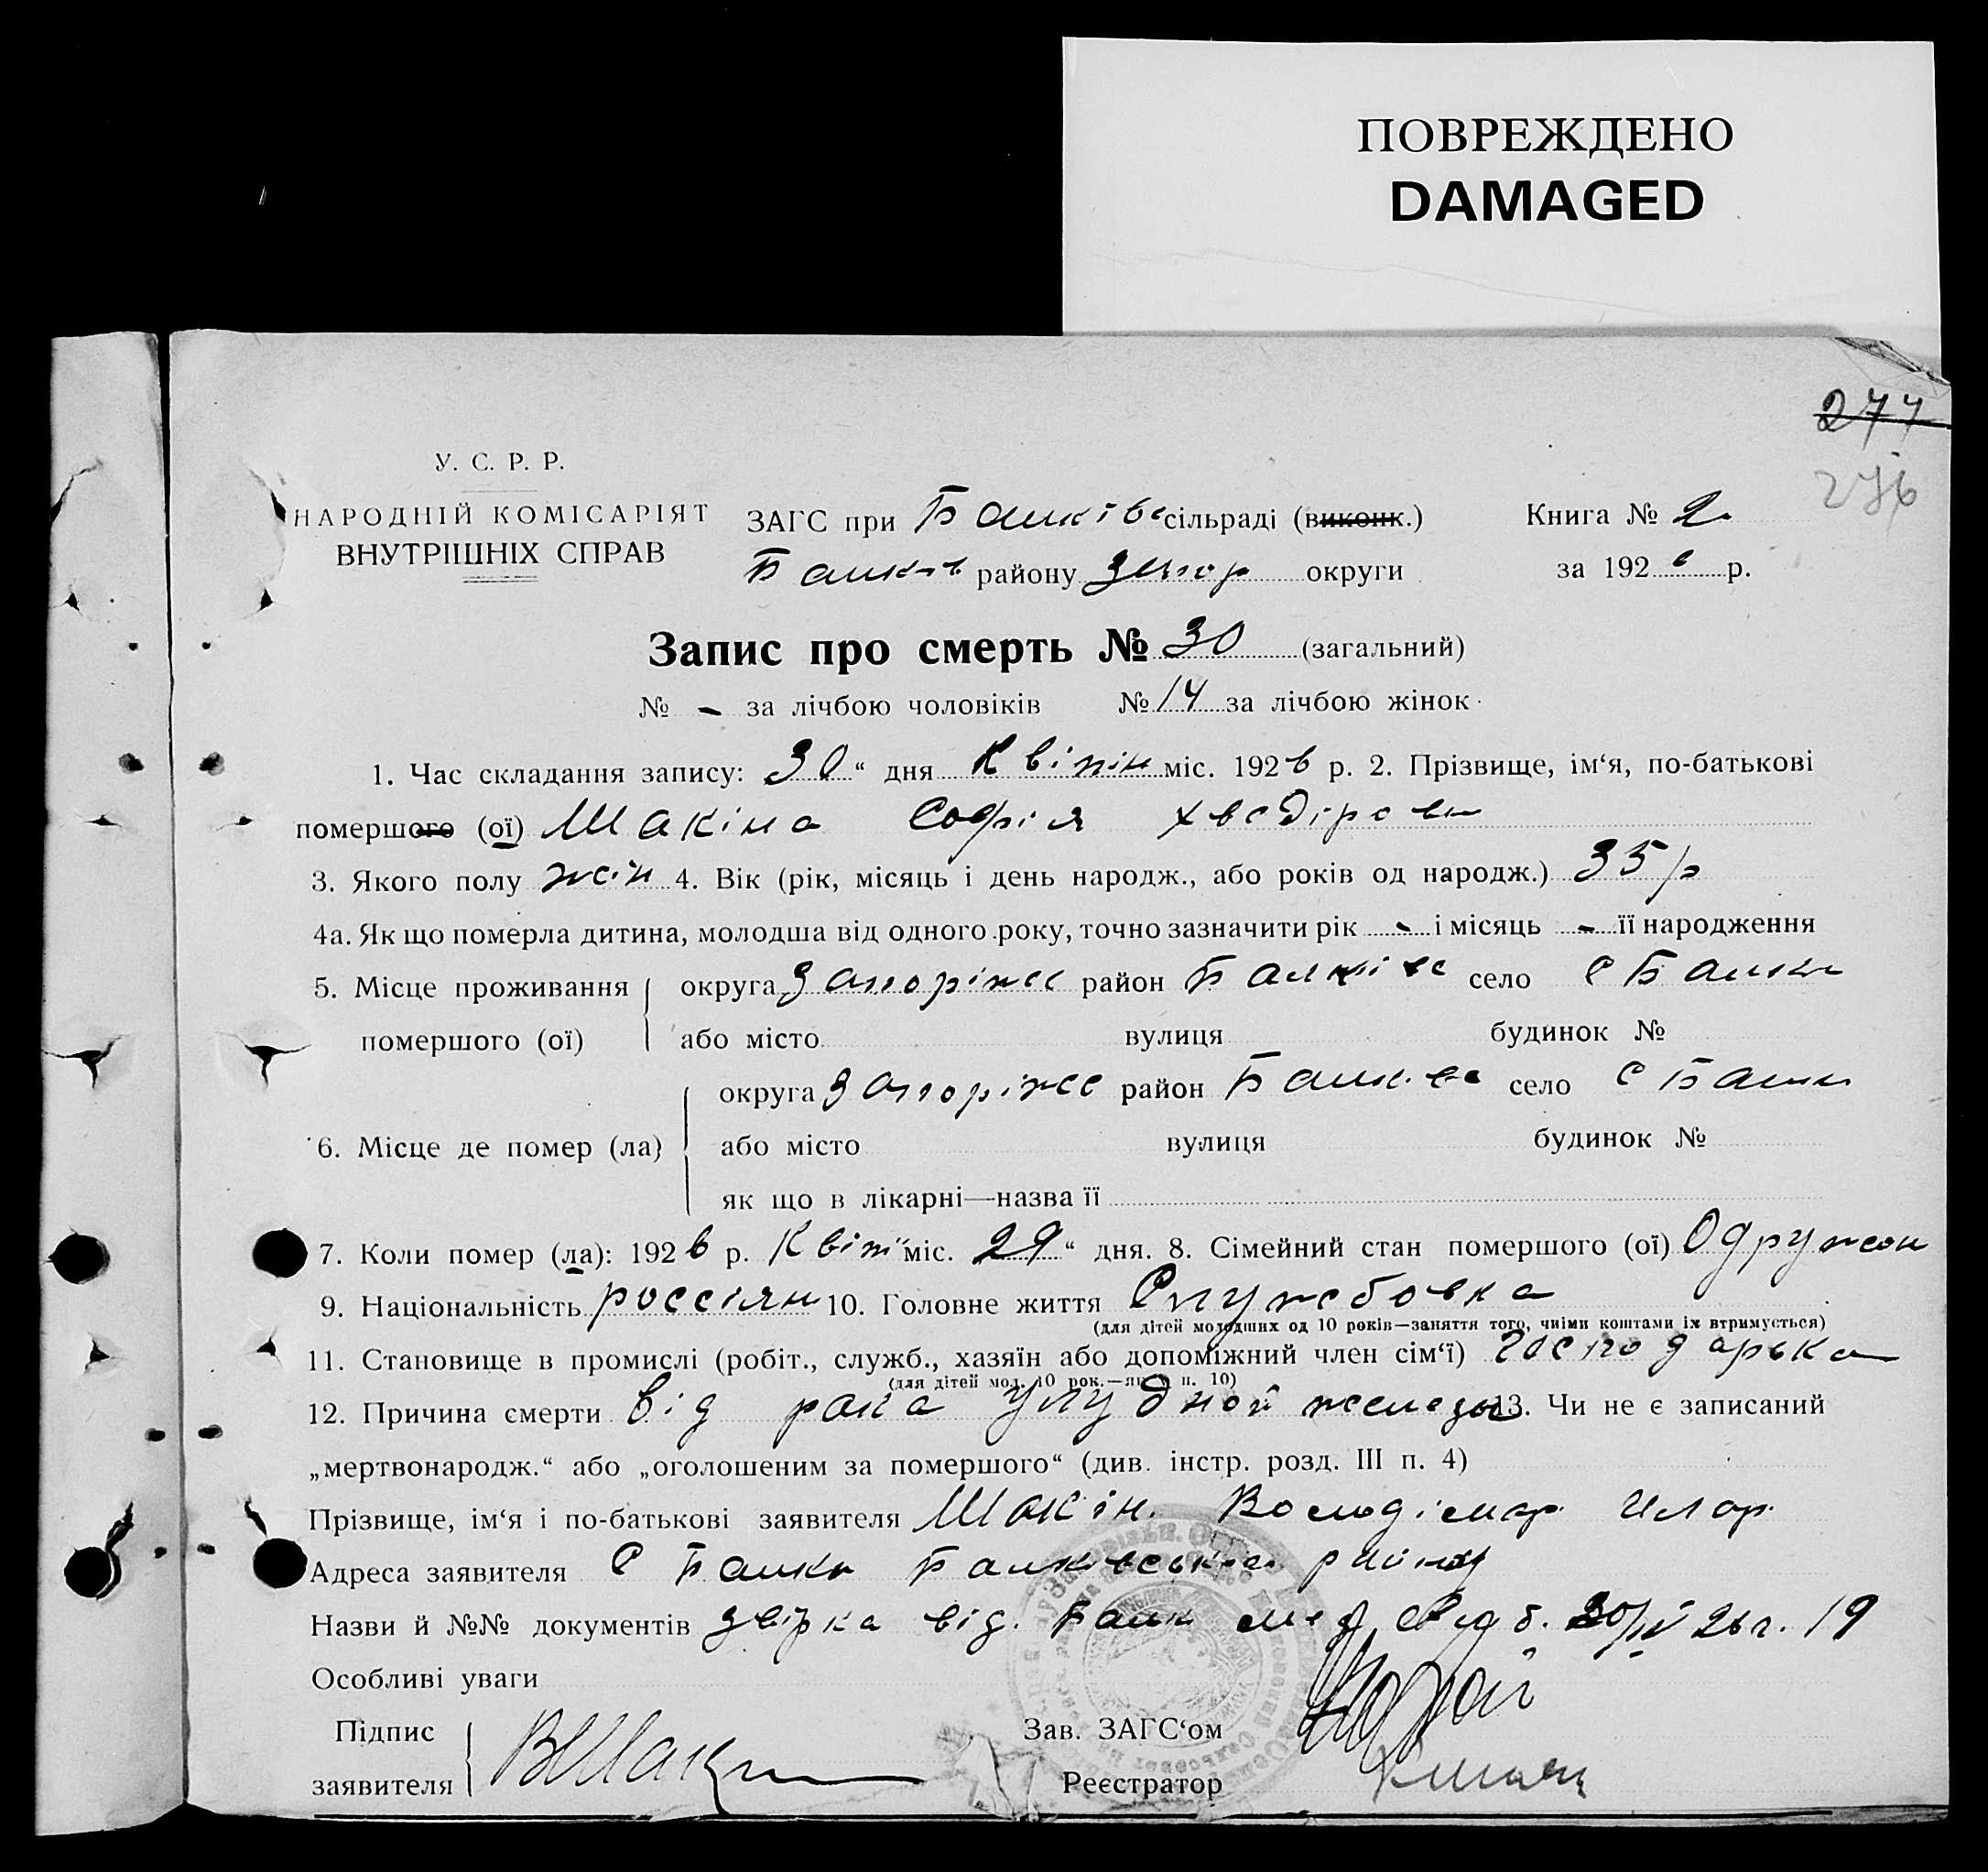 ПОВРЕЖДЕНО
DAMAGED
277
276
У. С. Р. Р.
НАРОДНІЙ КОМІСАРІЯТ
ВНУТРІШНІХ СПРАВ
ЗАГС при Балківс сільраді (виконк.)
Книга № 2
Балків району Запор округи
за 1926 р.
Запис про смерть № 30 (загальний)
№ - за лічбою чоловіків № 14 за лічбою жінок
1. Час складання запису: 30 “ дня Квітн міс. 1926 р. 2. Прізвище, ім‘я, по-батькові
помершого (ої) Шакіна Софія Хведіровн
3. Якого полу жін 4. Вік (рік, місяць і день народж., або років од народж.) 35 р
4а. Як що померла дитина, молодша від одного року, точно зазначити рік - і місяць - її народження
5. Місце проживання округа Запоріжсс район Балківс село С Балки
помершого (ої) або місто вулиця будинок №
округа Запоріжсс район Балківс село С Балки
6. Місце де помер (ла) або місто вулиця будинок №
як що в лікарні—назва її
7. Коли помер (ла): 1926 р. Квітн міс. 29 “ дня. 8. Сімейний стан помершого (ої) Одружон
9. Національність россіян 10. Головне життя Службовка
(для дітей молодших од 10 років—заняття того, чиїми коштами їх втримується)
11. Становище в промислі (робіт., служб., хазяїн або допоміжний член сім‘ї) господарька
(для дітей мол. 10 рок.—як в п. 10)
12. Причина смерти Від рака железы 13. Чи не є записаний
„мертвонародж.“ або „оголошеним за помершого“ (див. інстр. розд. III п. 4)
Прізвище, ім‘я і по-батькові заявителя Шакін. Володімар
Адреса заявителя С Балки Балківського району
Назви й №№ документів від. Балк мед 30/IV 26 г. 19
Особливі уваги
Підпис
заявителя ВШакин
Зав. ЗАГС‘ом
Реєстратор